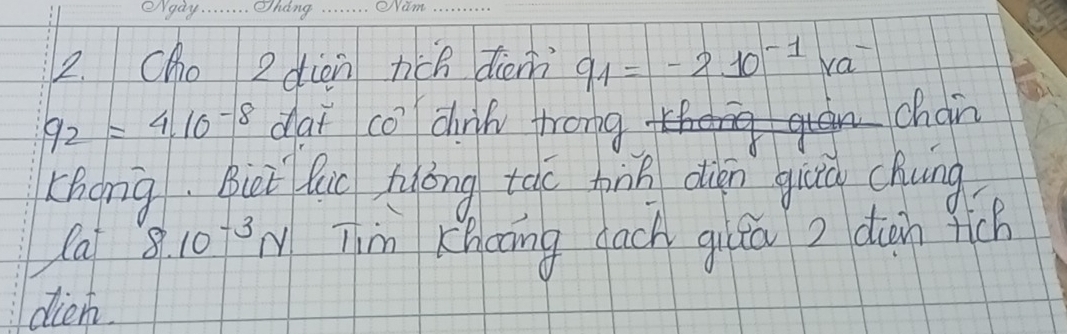 Ngày........ Tháng ........ Năm ..........
2. Cho 2 điện tích điểm q1 = -2.10^-1 và
q2 = 4.10^-8 đặt cố định trong không gian chân
không. Biết lực tương tác tĩnh điện giữa chúng
là 8.10^-3 N Tìm khoảng cách giữa 2 điện tích
điểm.